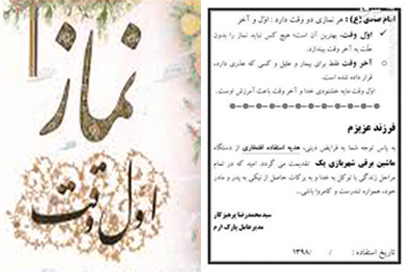 نماز
اول وقت
امام صادق (ع) : هر نمازی دو وقت دارد : اوّل و آخر
اوّل وقت، بهترین آن است؛ هیچ کس نباید نماز را بدون
علّت به آخر وقت بیندازد.
آخر وقت فقط برای بیمار و علیل و کسی که عذری دارد،
قرار داده شده است.
اوّل وقت مایه خشنودی خدا و آخر وقت باعث آمرزش اوست.
فرزند عزیزم
به پاس توجه شما به فرایض دینی، هدیه استفاده افتخاری از دستگاه
ماشین برقی شهربازی پک تقدیمت می گردد. امید که در تمام
مراحل زندگی با توکل به خدا و به برکات حاصل از نیکی به پدر و مادر
خود، همواره تندرست و کامروا باشی...
سیدمحمدرضا پرهیزکار
مدیرعامل پارک ارم
تاریخ استفاده : / /۱۳۹۸